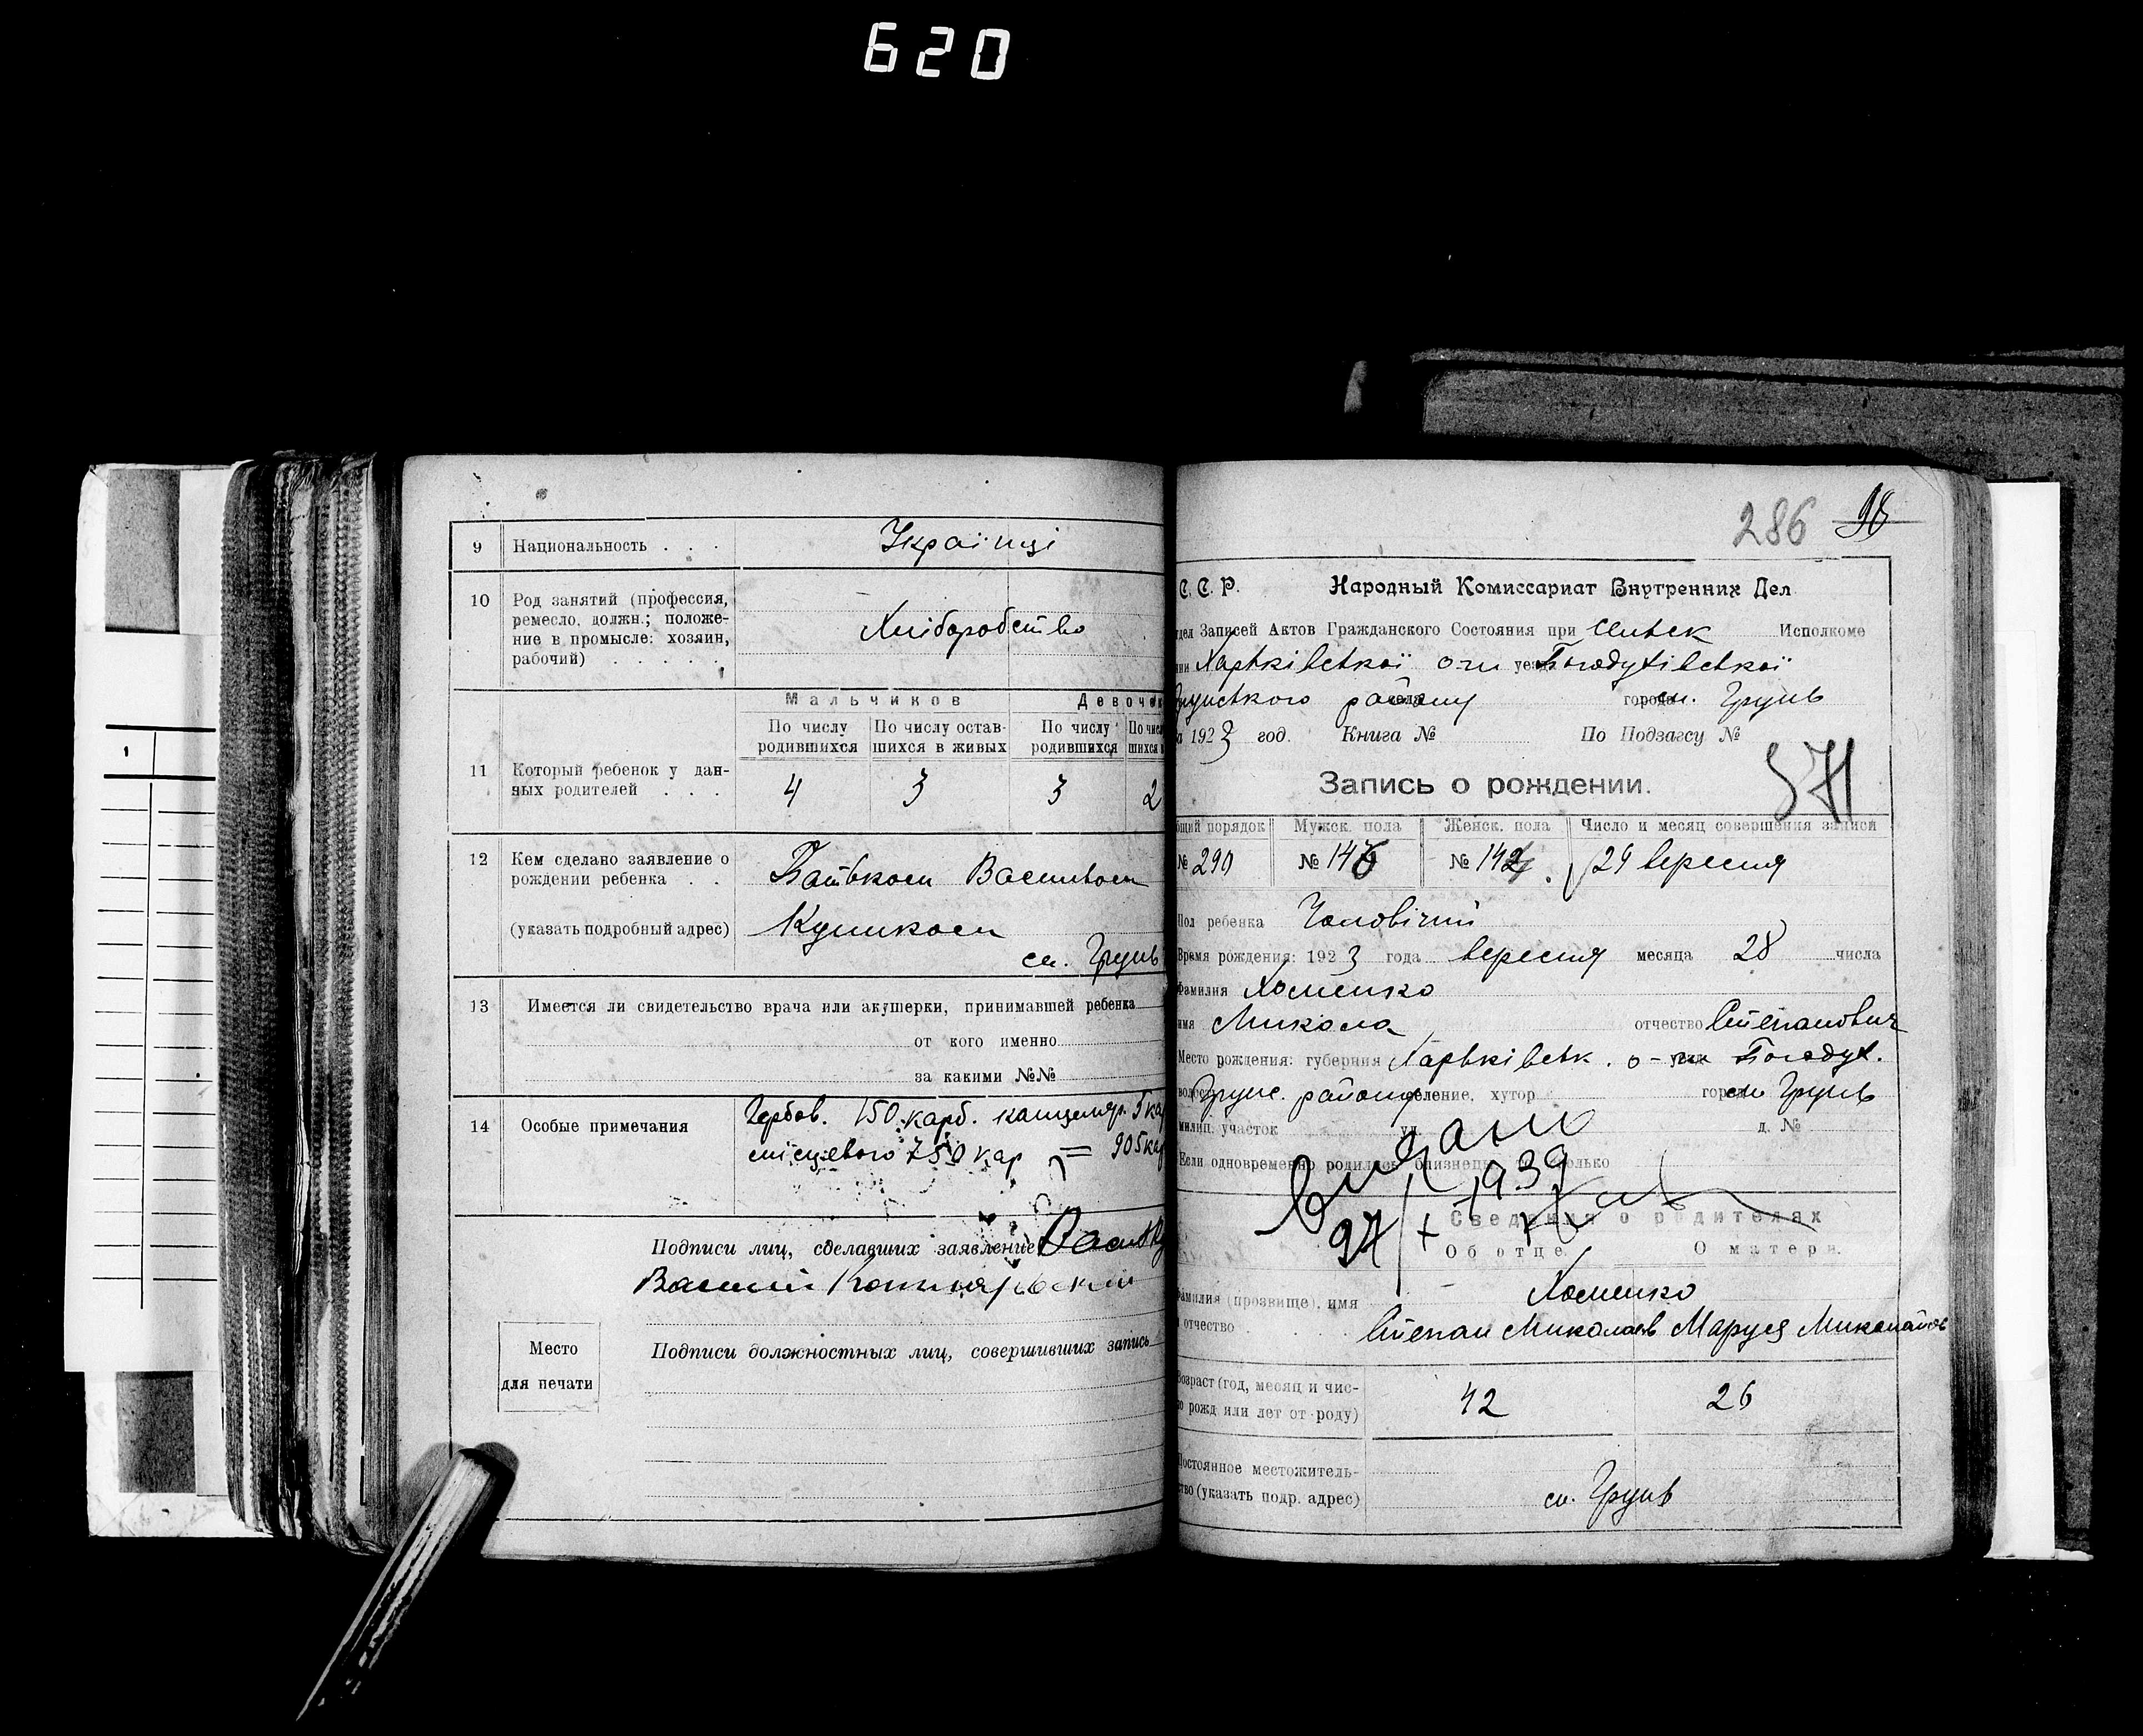 620
9 Национальность . . . Українці
10 Род занятий (профессия,
ремесло, должн.; положе-
ние в промысле: хозяин,
рабочий) . . . . . Хліборобство
Мальчиков Девочек
По числу родившихся По числу остав-шихся в живых По числу родившихся
11 Который ребенок у дан-
ных родителей . . . 4 3 3 2
12 Кем сделано заявление о
рождении ребенка . . Батьком Васильом
(указать подробный адрес)
сл. Грунь
13 Имеется ли свидетельство врача или акушерки, принимавшей ребенка
от кого именно
за какими №№
14 Особые примечания Гербов. 150 карб. канцеляр. 5
місцевого 750 кар = 905
Подписи лиц, сделавших заявление
Василий
Место
для печати
Подписи должностных лиц, совершивших запись
286 98
С. С. Р. Народный Комиссариат Внутренних Дел
Записей Актов Гражданского Состояния при Исполкоме
Харьківської о-ги Богодухівської
району сл. Грунь
1923 год. Книга № По Подзагсу №
Запись о рождении. 371
порядок Мужск. пола Женск. пола Число и месяц совершения записи
№ 290 № 146 № 29 вересня
Пол ребенка Чоловічий
Время рождения: 1923 года вересня месяца 28 числа
Фамилия Хоменко
имя Микола отчество Степанович
Место рождения: губерния Харьківськ. Богодух.
Грунс. району селение, хутор сл. Грунь
милиц. участок ул. д. №
Если одновременно родились близнецы сколько
видано
1939
Сведения о родителях
Об отце О матери.
Фамилия (прозвище), имя Хоменко
отчество . . . Степан Миколаєв Маруся Миколаїов
Возраст (год, месяц и чис-
рожд или лет от роду) 42 26
Постоянное местожитель-
ство (указать подр. адрес) сл. Грунь